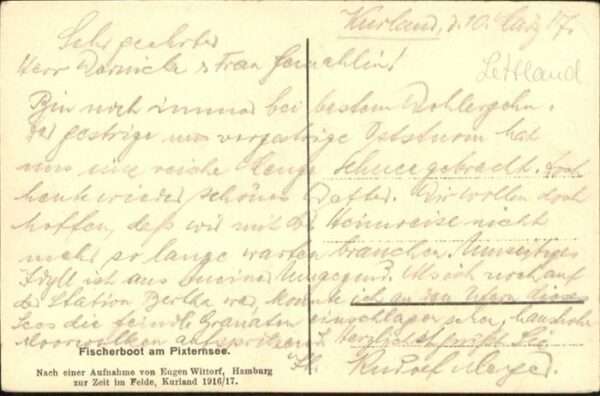 Kurland, d. 10. März 17.
Lettland
Sehr geehrter
Herr Dornicke & Frau Gemahlin!
Bin noch immer bei bestem Wohlergehn.
Der gestrige und vorgestrige Oststurm hat
uns eine reiche Menge Schnee gebracht. Doch
heute wieder schönes Wetter. Wir wollen doch
hoffen, daß wir mit der Heimreise nicht
mehr so lange warten brauchen. Umseitiges
Idyll ist aus meiner Umgegend. Als ich noch auf
der Station Bertha war, konnte ich an den Ufern dieses
Sees die feindl. Granaten einschlagen sehn, haushohe
Moorwolken aufspritzend. Herzlichst grüßt Sie
Rudolf Meyer.
Fischerboot am Pixternsee.
Nach einer Aufnahme von Eugen Wittorf, Hamburg
zur Zeit im Felde, Kurland 1916/17.